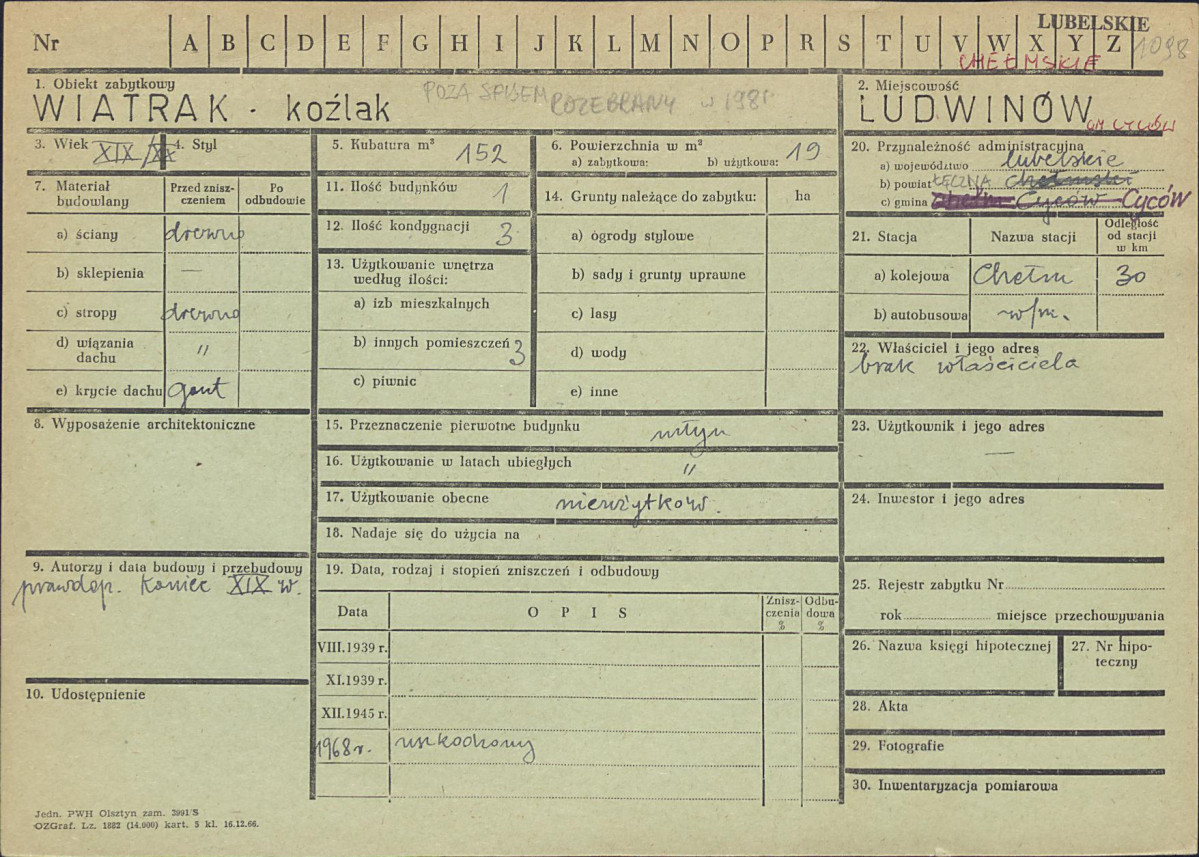 LUBELSKIE
Nr A B C D E F G H I J K L M N O P R S T U V W X Y Z 1098
CHEŁMSKIE
1. Obiekt zabytkowy
WIATRAK - koźlak POZA SPISEM ROZEBRANY w 1981
2. Miejscowość
LUDWINÓW
GM CYCÓW
3. Wiek XIX/XX 4. Styl
5. Kubatura m³ 152
6. Powierzchnia w m²
a) zabytkowa: b) użytkowa: 19
7. Materiał budowlany
Przed zniszczeniem
Po odbudowie
a) ściany drewno
b) sklepienia —
c) stropy drewno
d) wiązania dachu "
e) krycie dachu gont
8. Wyposażenie architektoniczne
9. Autorzy i data budowy i przebudowy
prawdop. koniec XIX w.
10. Udostępnienie
11. Ilość budynków 1
12. Ilość kondygnacji 3
13. Użytkowanie wnętrza
według ilości:
a) izb mieszkalnych
b) innych pomieszczeń 3
c) piwnic
14. Grunty należące do zabytku: ha
a) ogrody stylowe
b) sady i grunty uprawne
c) lasy
d) wody
e) inne
15. Przeznaczenie pierwotne budynku młyn
16. Użytkowanie w latach ubiegłych "
17. Użytkowanie obecne nieużytkow.
18. Nadaje się do użycia na
19. Data, rodzaj i stopień zniszczeń i odbudowy
Data OPIS Zniszczenia % Odbudowa %
VIII.1939 r.
XI.1939 r.
XII.1945 r.
1968 r. uszkodzony
20. Przynależność administracyjna
a) województwo lubelskie
b) powiat ŁĘCZNA chełmski
c) gmina Chełm Cyców Cyców
21. Stacja Nazwa stacji Odległość od stacji w km
a) kolejowa Chełm 30
b) autobusowa w/m.
22. Właściciel i jego adres
brak właściciela
23. Użytkownik i jego adres
—
24. Inwestor i jego adres
25. Rejestr zabytku Nr
rok miejsce przechowywania
26. Nazwa księgi hipotecznej
27. Nr hipoteczny
28. Akta
29. Fotografie
30. Inwentaryzacja pomiarowa
Jedn. PWH Olsztyn zam. 3991/S
OZGraf. Lz. 1882 (14.000) kart. 5 kl. 16.12.66.